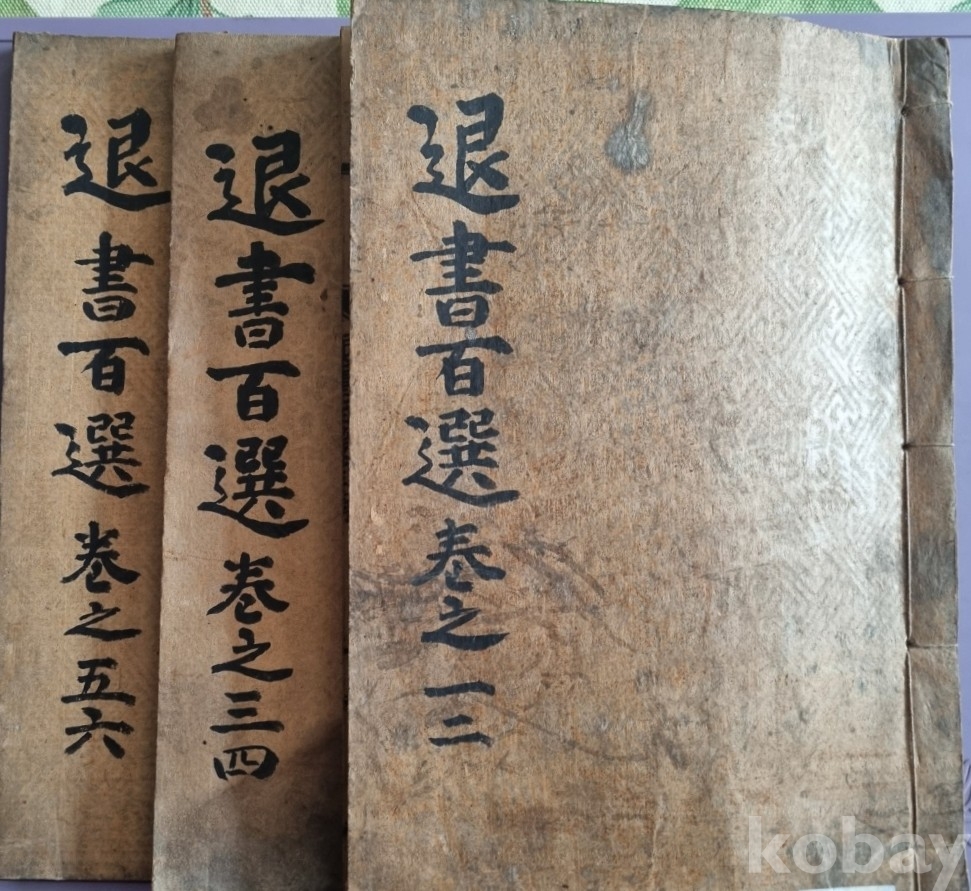 退書百選 卷之一二
退書百選 卷之三四
退書百選 卷之五六
kobay